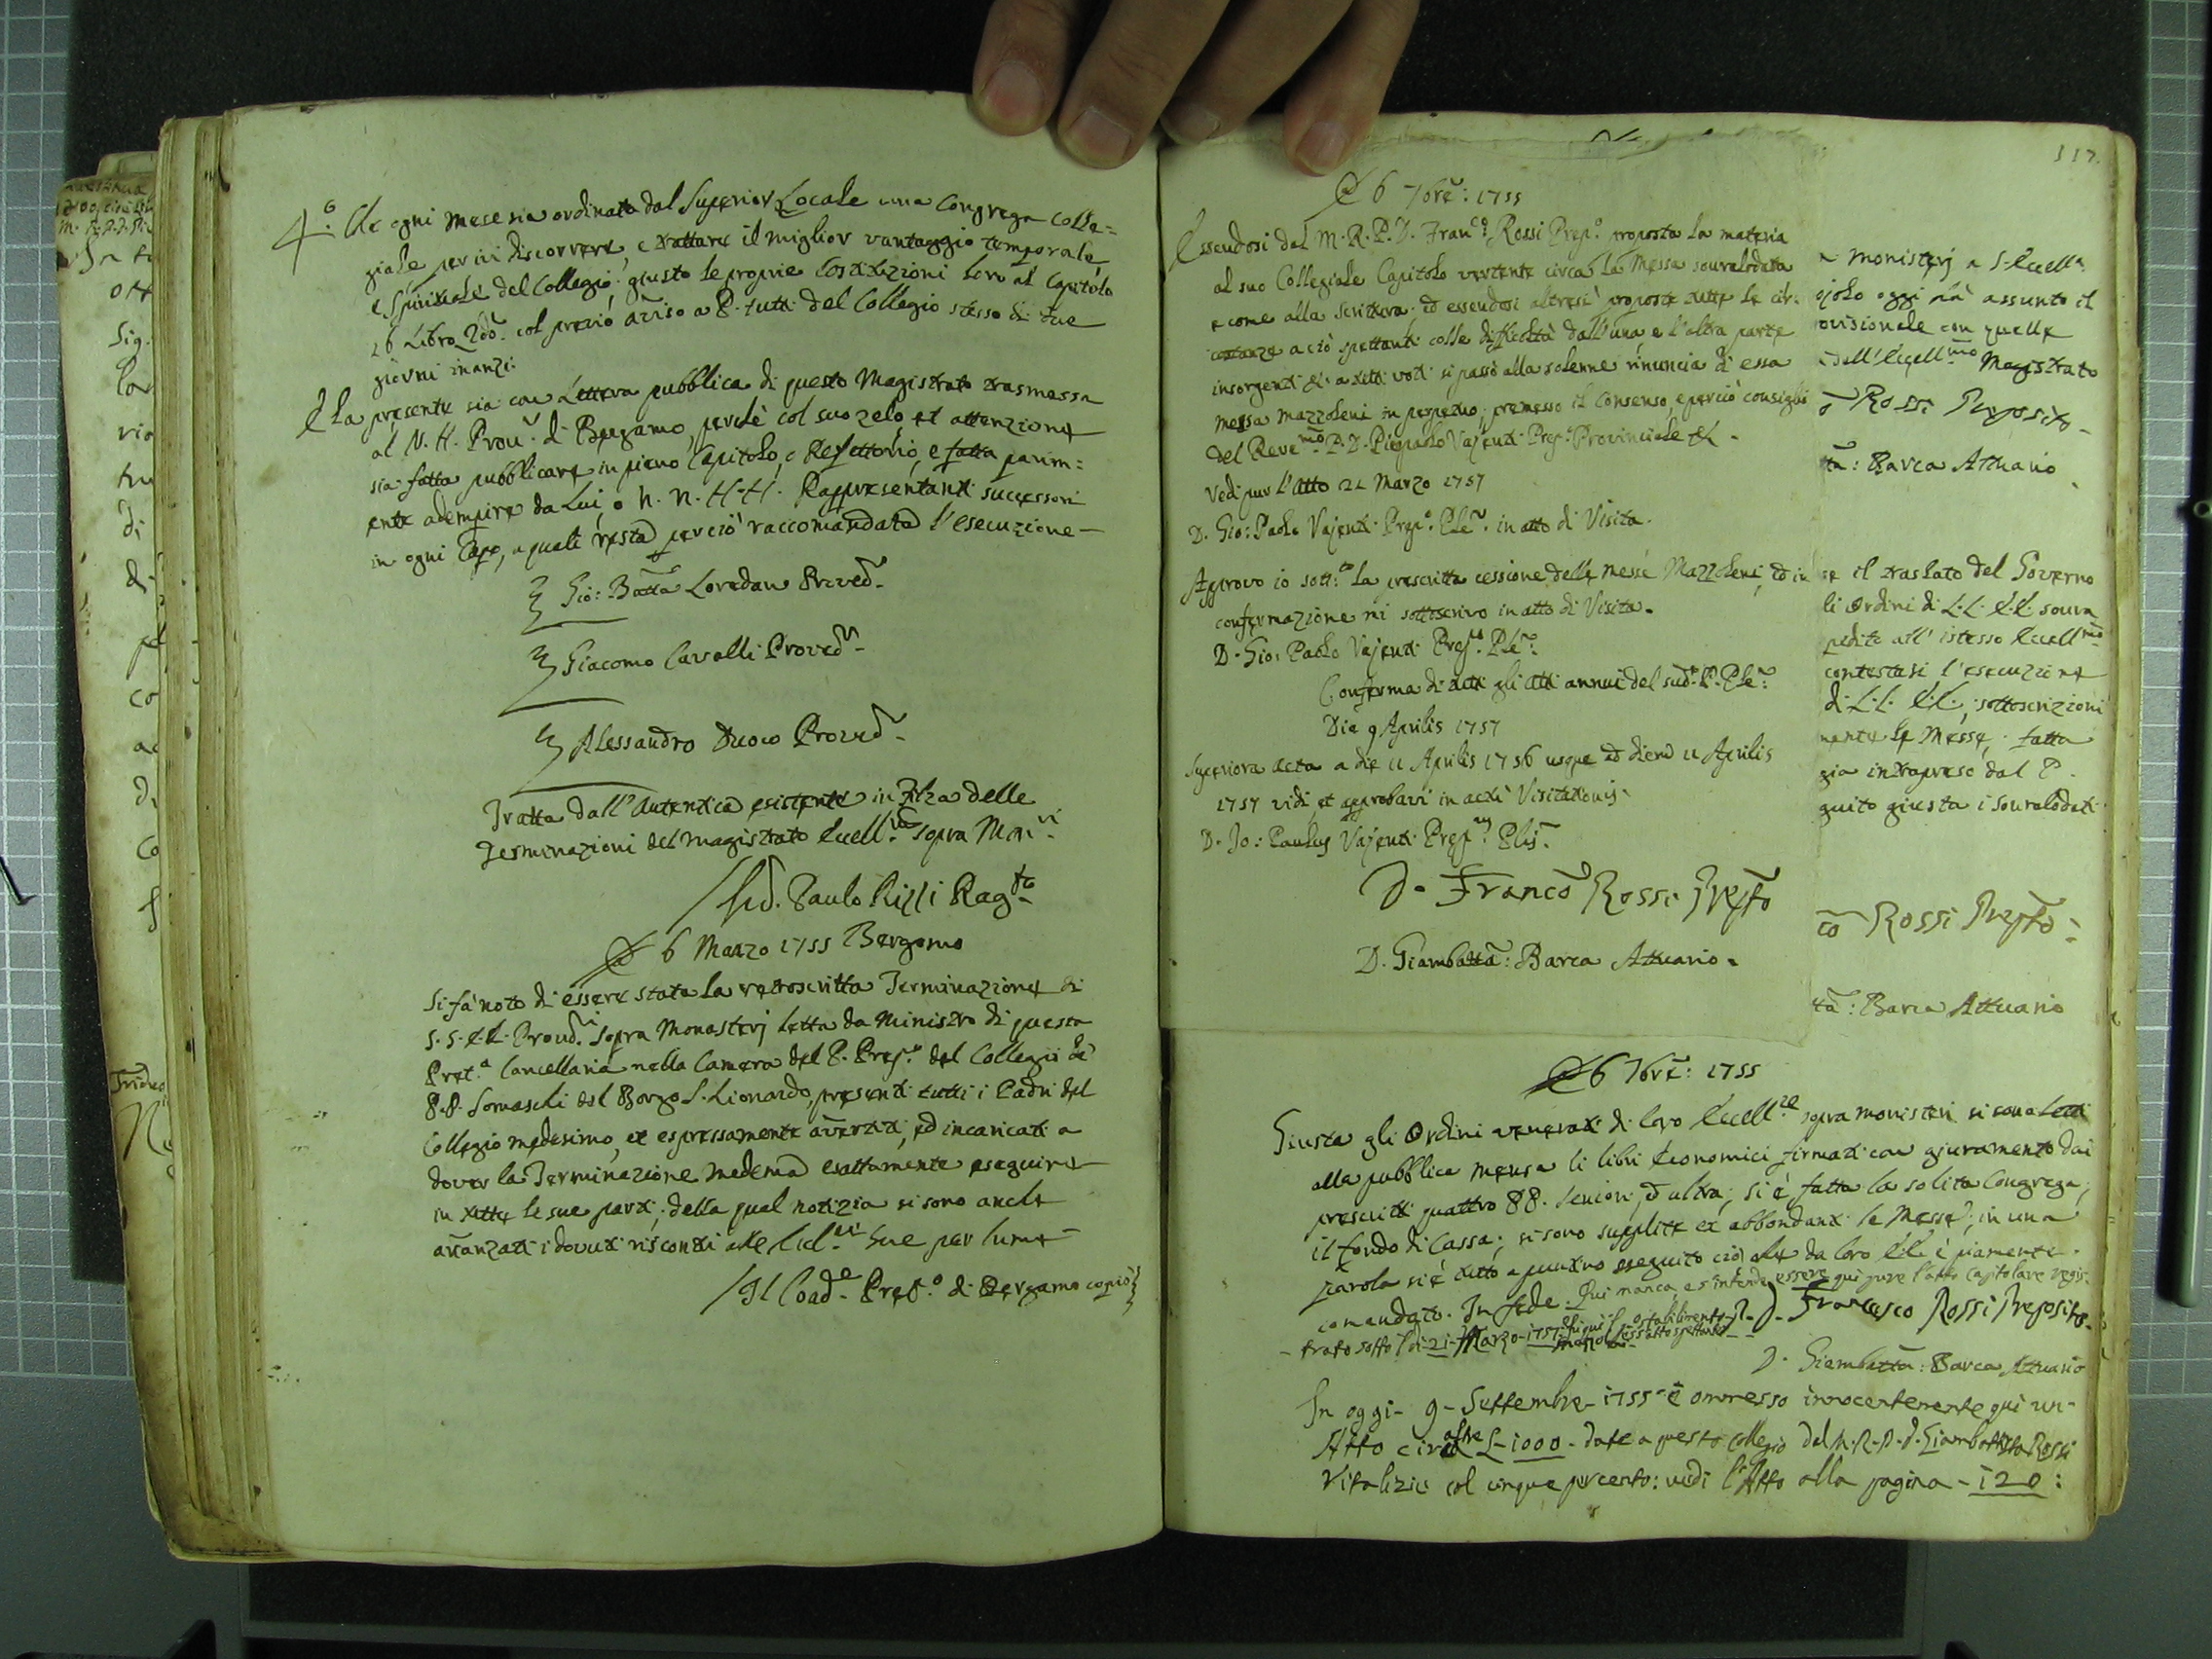 4.º Che ogni mese sia ordinata dal Superior Locale una Congrega colle=
giale per ivi discorrere, e trattare il miglior vantaggio temporale,
e Spirituale del Collegio, giusto le proprie Costituzioni loro al Capitolo
16 Libro 2do. col previo aviso a P. tutti del Collegio stesso di due
giorni inanzi.
E la presente sia con Lettera pubblica di questo Magistrato trasmessa
al N. H. Prour. di Bergamo, perchè col suo zelo, et attenzione
sia fatta pubblicare in pieno Capitolo, e Refettorio, e fatta parim=
ente adempire da Lui, o N. N. H. H. Rappresentanti successori
in ogni Capo, a quali resta perciò raccomandata l'esecuzione
Gio: Batta Loredan Proved.
Giacomo Cavalli Provedr
Alessandro Duodo Proved.
Tratta dall'autentica esistente in Filza delle
Terminazioni del Magistrato Eccell.mo sopra Mon.ri
Paulo Rizzi Rag.to
A 6 Marzo 1755 Bergamo
Si fà noto di essere stata la retroscritta Terminazione di
S. S. E.E. Proud.ri sopra Monasterj letta da Ministro di questa
Pret.a Cancellaria nella Camera del P. Prep.o del Collegio de
P.P. Somaschi del Borgo S. Lionardo, presenti tutti i Padri del
Collegio medesimo, et espressamente avertiti, ed incaricati a
dover la Terminazione medema esattamente eseguire
in tutte le sue parti; della qual notizia si sono anche
avanzati i dovuti riscontri alle sue per lume
Il Coad.e Pref.o di Bergamo copiò
117.
A 6 7bre: 1755
Essendosi dal M. R. P. D. Fran.co Rossi Prep.o proposta la materia
al suo Collegiale Capitolo vertente circa la Messa souralodata
e come alla scrittura; ed essendosi altresì proposte tutte le cir:
costanze a ciò spettanti colle difficoltà dall'una, e l'altra parte
insorgenti &: a tutti voti si passò alla solenne rinuncia di essa
messa Mazzoleni in perpetuo; premesso il Consenso, e perciò consiglio
del Reve.mo P. D. Pierpaolo Vajenti Prep.o Provinciale &.
Vedi pur l'Atto 21 Marzo 1757
D. Gio: Paolo Vajenti Prep.o Ple. in atto di Visita.
Approvo io sott.to la prescritta cessione delle Messe Mazzoleni, ed in
confermazione mi sottoscrivo in atto di Visita.
D. Gio: Paolo Vajenti Prep.to Ple.
Conferma di tutti gli Atti annui del sud.o P. Ple:
Die 9 Aprilis 1757
Superiora acta a die 11 Aprilis 1756 usque ad diem 11 Aprilis
1757 vidi, et approbavi in actu Visitationis.
D. Jo: Paulus Vajenti Prep.us Plis.
D. Franco Rossi Prepto
D. Giambatta: Barca Attuario.
a monisterj a S. Eccell.a
ojolo oggi hà assunto il
ovisionale con quelle
dell'Eccell.mo Magistrato
o Rossi Preposito
tta: Barca Attuario
se il traslato del Governo
li Ordini di L.L. E.E. soura
pedite all'istesso Eccell.mo
contestasi l'esecuzione
di L.L. E.E., sottoscrizioni
mente le Messe, fatta
gia intrapreso dal P.
guito giusta i souralodati
co Rossi Prepto.
tta: Barca Attuario
A 6 7bre: 1755
Giusta gli Ordini venerati di loro Eccell.ze sopra monisteri si sono letti
alla pubblica mensa li libri Economici firmati con giuramento dai
prescritti quattro PP. seniori, ed ultra, si è fatta la solita Congrega,
il fondo di Cassa; si sono supplite ex abbondanti le Messe; in una
parola si è tutto a puntino eseguito ciò che da loro E.E. è piamente
comandato. In fede. Qui manca, e s'intende essere qui pure l'atto Capitolare regis-
trato sotto l dì 21 Marzo 1757 D. Francesco Rossi Preposito
D. Giambatta: Barca Attuario
In oggi - 9 - Settembre - 1755 - è ommesso innocentemente qui un
Atto circa alle L 1000 - date a questo collegio dal M. R. P. D. Giambattista Rossi
Vitalizie col cinque per cento: vedi l'Atto alla pagina - 120: